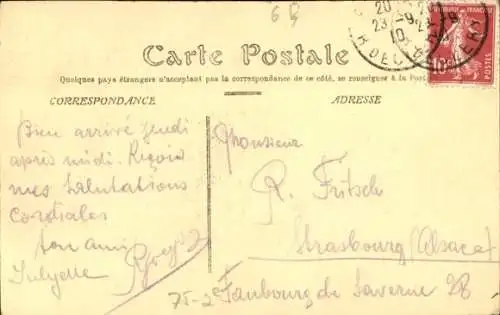 69
Carte Postale
Quelques pays étrangers n'acceptant pas la correspondance de ce côté, se renseigner à la Poste
CORRESPONDANCE
ADRESSE
Bien arrivé jeudi
après midi. Reçois
mes salutations
cordiales
ton ami
Monsieur
R. Fritsch
Strasbourg (Alsace)
Faubourg de Saverne 28
75-2
FRANÇAISE
10c
POSTES